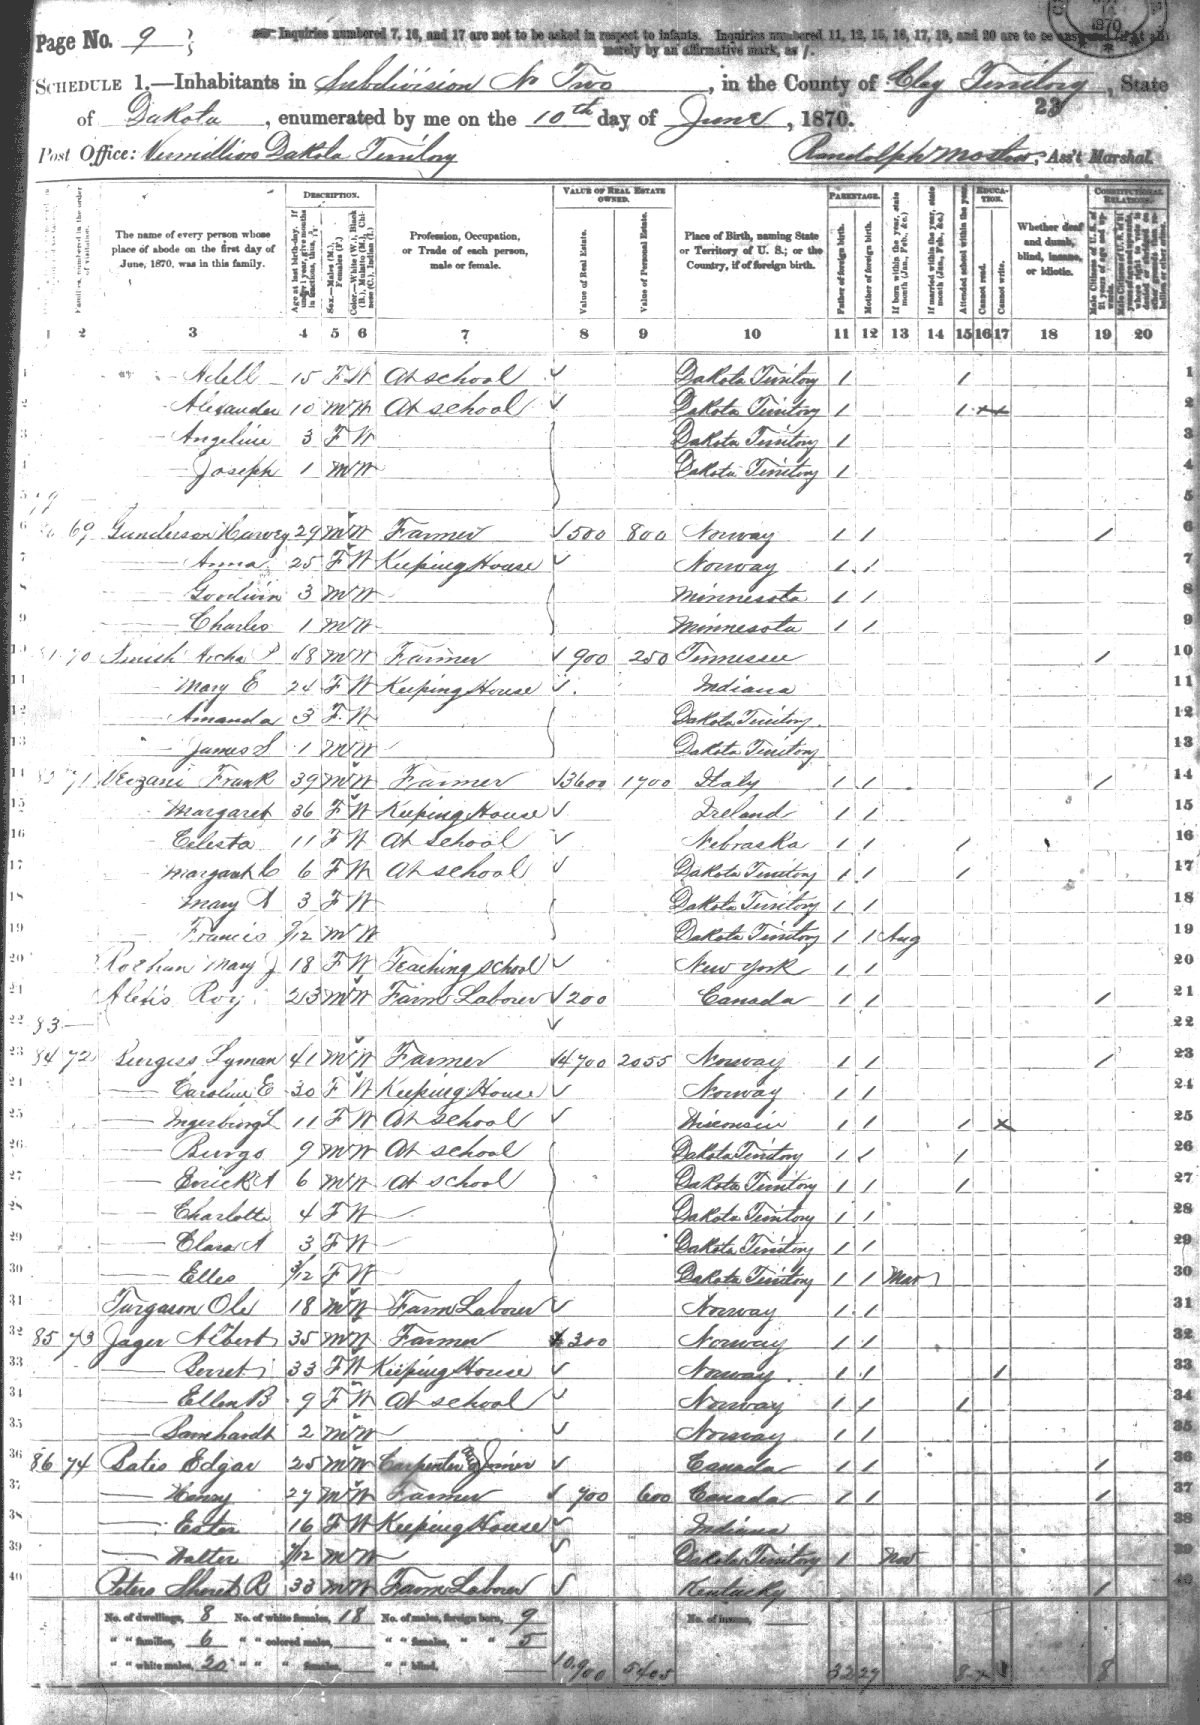 Page No. 9
Inquiries numbered 7, 16, and 17 are not to be asked in respect to infants. Inquiries numbered 11, 12, 15, 16, 17, 19, and 20 are to be answered, if at all,
merely by an affirmative mark, as /.
1870
SCHEDULE 1.—Inhabitants in Subdivision No Two, in the County of Clay Territory, State
23
of Dakota, enumerated by me on the 10th day of June, 1870.
Post Office: Vermillion Dakota Territory Randolph, Ass't Marshal.
DESCRIPTION. VALUE OF REAL ESTATE OWNED. PARENTAGE. EDUCATION. CONSTITUTIONAL RELATIONS.
Families, numbered in the order of visitation. The name of every person whose place of abode on the first day of June, 1870, was in this family. Age at last birth-day. If under 1 year, give months in fractions, thus, Sex.—Males (M.), Females (F.) Color.—White (W.), Black (B.), Mulatto (M.), Chinese (C.), Indian (I.) Profession, Occupation, or Trade of each person, male or female. Value of Real Estate. Value of Personal Estate. Place of Birth, naming State or Territory of U. S.; or the Country, if of foreign birth. Father of foreign birth. Mother of foreign birth. If born within the year, state month (Jan., Feb., &c.) If married within the year, state month (Jan., Feb., &c.) Attended school within the year. Cannot read. Cannot write. Whether deaf and dumb, blind, insane, or idiotic. Male Citizens of U. S. of 21 years of age and upwards.
1 2 3 4 5 6 7 8 9 10 11 12 13 14 15 16 17 18 19 20
— Adell 15 F W At school ✓ Dakota Territory / / 1
2 — Alexander 10 M W At school ✓ Dakota Territory / / 2
— Angeline 3 F W Dakota Territory / 3
4 — Joseph 1 M W Dakota Territory / 4
5 5
6 69 Gunderson Harvey 29 M W Farmer ✓ 500 800 Norway / / / 6
7 — Anna 25 F W Keeping House ✓ Norway / / 7
8 — Goodwin 3 M W Minnesota / / 8
9 — Charles 1 M W Minnesota / / 9
10 81 70 Smith Archa P 48 M W Farmer ✓ 900 250 Tennessee / 10
11 — Mary E 24 F W Keeping House ✓ Indiana 11
12 — Amanda 3 F W Dakota Territory 12
13 James S 1 M W Dakota Territory 13
14 82 71 Verzani Frank 39 M W Farmer ✓ 3600 1700 Italy / / / 14
15 Margaret 36 F W Keeping House ✓ Ireland / / 15
16 — Celesta 11 F W At school ✓ Nebraska / / / 16
17 — Margaret C 6 F W At school ✓ Dakota Territory / / / 17
18 — Mary A 3 F W Dakota Territory / / 18
19 — Francis /12 M W Dakota Territory / / Aug 19
20 Mary J 18 F W Teaching school ✓ New York / / 20
21 Alexis Roy 23 M W Farm Laborer ✓ 200 Canada / / / 21
22 83 — ✓ 22
23 84 72 Burgess Lyman 41 M W Farmer ✓ 4700 2055 Norway / / / 23
24 — Caroline E 30 F W Keeping House ✓ Norway / / 24
25 — Ingerburg L 11 F W At school ✓ Wisconsin / / / x 25
26 — Burgo 9 M W At school Dakota Territory / / / 26
27 — Erick A 6 M W At school Dakota Territory / / / 27
28 — Charlotte 4 F W Dakota Territory / / 28
29 — Clara A 3 F W Dakota Territory / / 29
30 — Elles 3/12 F W Dakota Territory / / Mar 30
31 Turgason Ole 18 M W Farm Laborer ✓ Norway / / 31
32 85 73 Jager Albert 35 M W Farmer 300 Norway / / 32
33 — Berret 33 F W Keeping House ✓ Norway / / / 33
34 — Ellen B 9 F W At school ✓ Norway / / / 34
35 — Barnhardt 2 M W ✓ Norway / / 35
36 86 74 Bates Edgar 25 M W Carpenter and Joiner ✓ Canada / / / 36
37 — Henry 27 M W Farmer ✓ 700 600 Canada / / / 37
38 — Ester 16 F W Keeping House ✓ Indiana 38
39 — Walter /12 M W Dakota Territory / Nov 39
40 Peters R 33 M W Farm Laborer ✓ Kentucky / 40
No. of dwellings, 8 No. of white females, 18 No. of males, foreign born, 9 No. of insane,
" " families, 6 " " colored males, " " females, " " 5
" " white males, 20 " " " females, " " blind, 10,900 5405 32 29 8 8